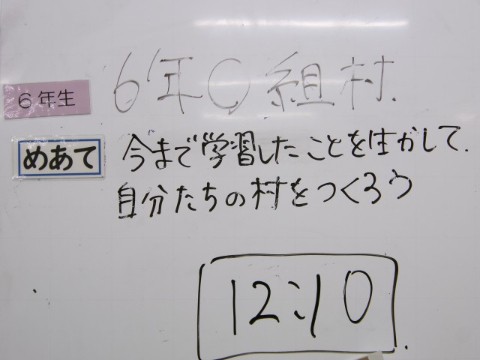 6年生 6年〇組村.
めあて 今まで学習したことを生かして.
自分たちの村をつくろう
12:10